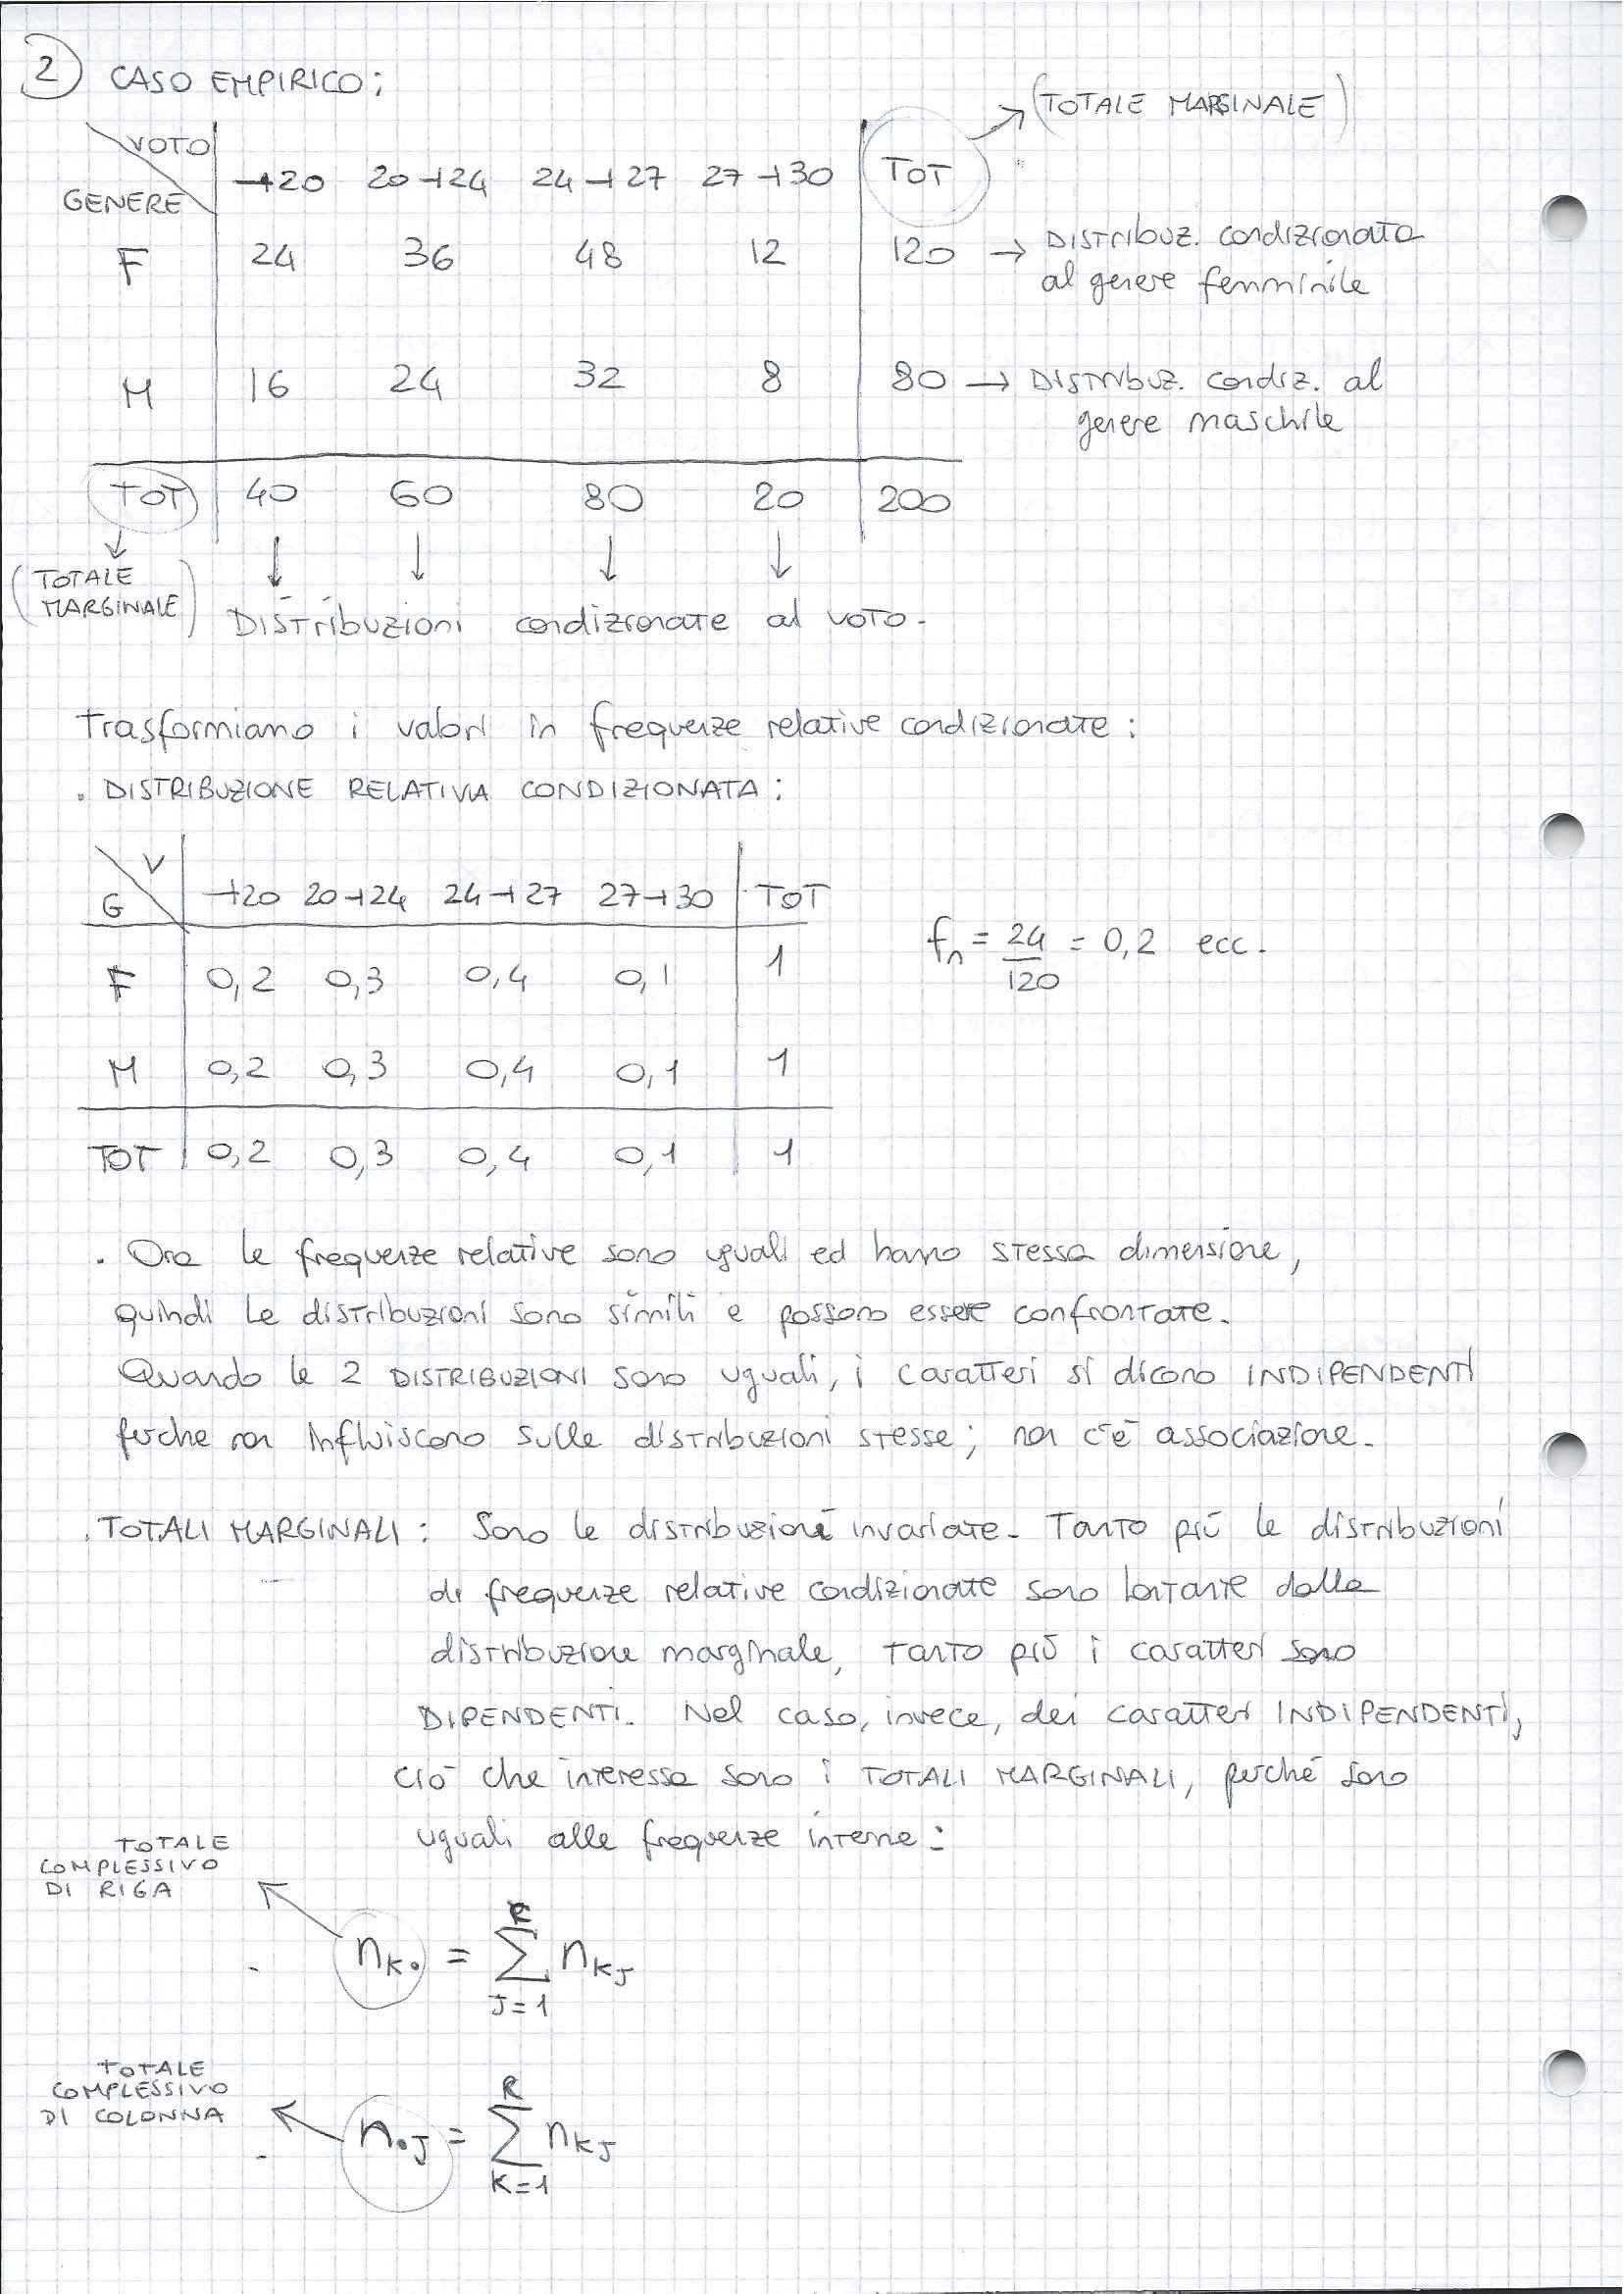 2 CASO EMPIRICO:
(TOTALE MARGINALE)
VOTO
GENERE
⊣20 20⊣24 24⊣27 27⊣30 TOT
F 24 36 48 12 120 → DISTRIBUZ. condizionata
al genere femminile
M 16 24 32 8 80 → DISTRIBUZ. condiz. al
genere maschile
TOT 40 60 80 20 200
↓ ↓ ↓ ↓ ↓
(TOTALE
MARGINALE)
DISTribuzioni condizionate al voto.
Trasformiamo i valori in frequenze relative condizionate:
. DISTRIBUZIONE RELATIVA CONDIZIONATA:
V
G ⊣20 20⊣24 24⊣27 27⊣30 TOT
F 0,2 0,3 0,4 0,1 1
fn = 24/120 = 0,2 ecc.
M 0,2 0,3 0,4 0,1 1
TOT 0,2 0,3 0,4 0,1 1
. Ora le frequenze relative sono uguali ed hanno stessa dimensione,
quindi le distribuzioni sono simili e possono essere confrontate.
Quando le 2 DISTRIBUZIONI sono uguali, i caratteri si dicono INDIPENDENTI
perche non influiscono sulle distribuzioni stesse; non c'è associazione.
. TOTALI MARGINALI: Sono le distribuzioni invariate. Tanto più le distribuzioni
di frequenze relative condizionate sono lontane dalla
distribuzione marginale, tanto più i caratteri sono
DIPENDENTI. Nel caso, invece, dei caratteri INDIPENDENTI,
ciò che interessa sono i TOTALI MARGINALI, perché sono
uguali alle frequenze interne:
TOTALE
COMPLESSIVO
DI RIGA
. nK. = ∑ J=1 nKJ
TOTALE
COMPLESSIVO
DI COLONNA
. n.J = R ∑ K=1 nKJ